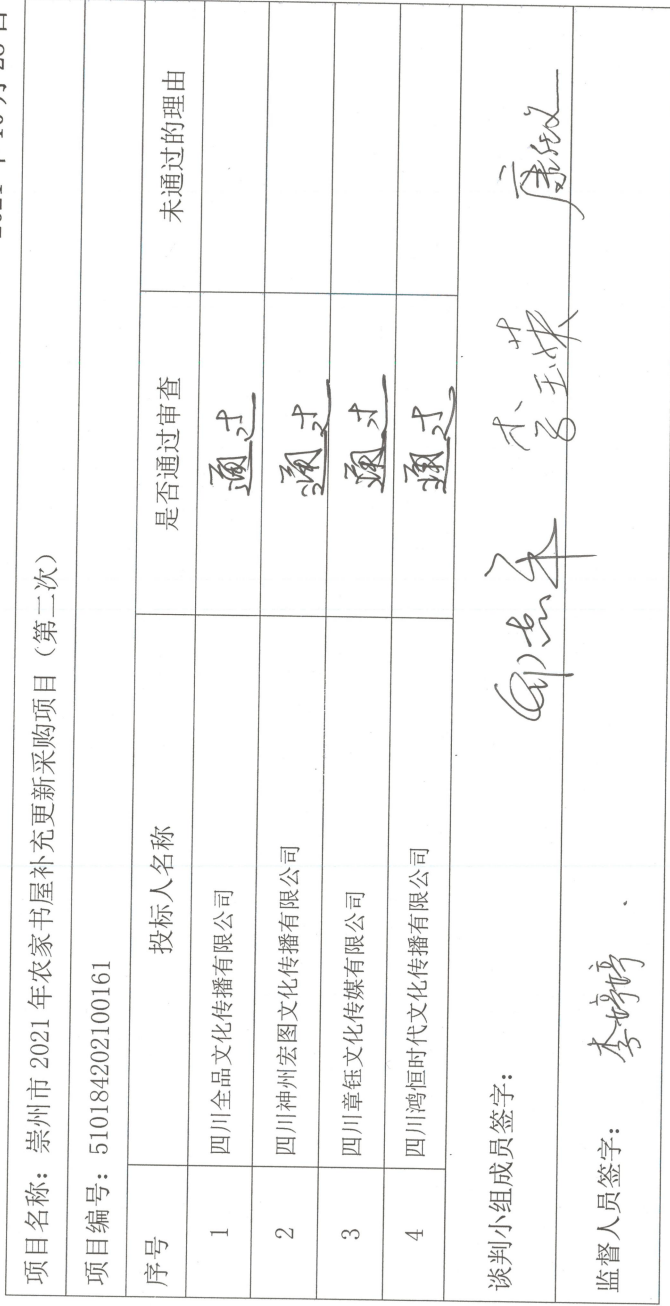 项目名称：崇州市 2021 年农家书屋补充更新采购项目（第二次）
项目编号：510184202100161
序号 投标人名称 是否通过审查 未通过的理由
1 四川全品文化传播有限公司 通过
2 四川神州宏图文化传播有限公司 通过
3 四川章钰文化传媒有限公司 通过
4 四川鸿恒时代文化传播有限公司 通过
谈判小组成员签字： 李玉英
监督人员签字： 李婷婷